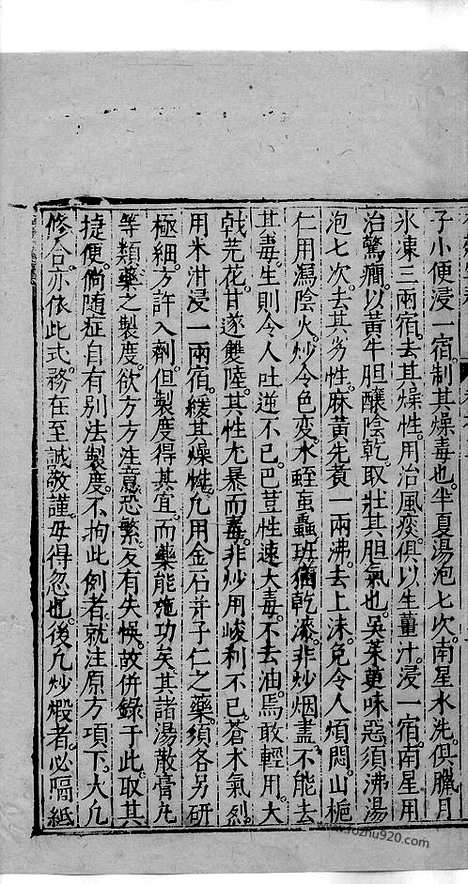 子小便浸一宿制其燥毒也半夏湯泡七次南星水洗俱臘月
氷凍三兩宿去其燥性用治風痰俱以生薑汁浸一宿南星用
治驚癎以黃牛胆釀陰乾取壯其胆氣也吳茱萸味惡須沸湯
泡七次去其劣性麻黃先煑一兩沸去上沫免令人煩悶山梔
仁用瀉陰火炒令色变水蛭虻蟲班猫乾漆非炒烟盡不能去
其毒生則令人吐逆不已巴荳性速大毒不去油焉敢輕用大
戟芫花甘遂雙陸其性尤暴而毒非炒用峻利不已蒼术氣烈
用米泔浸一兩宿緩其燥性凢用金石并子仁之藥須各另研
極細方許入劑但製度得其宜而藥能施功矣其諸湯散膏凢
等類藥之製度欲方方注意恐繁友有失悞故併錄于此取其
捷便倘随症自有別法製度不拘此例者就注原方項下大凢
修合亦依此式務在至誠敬謹毋得忽也後凢炒煅者必隔紙
www.fozhu920.com